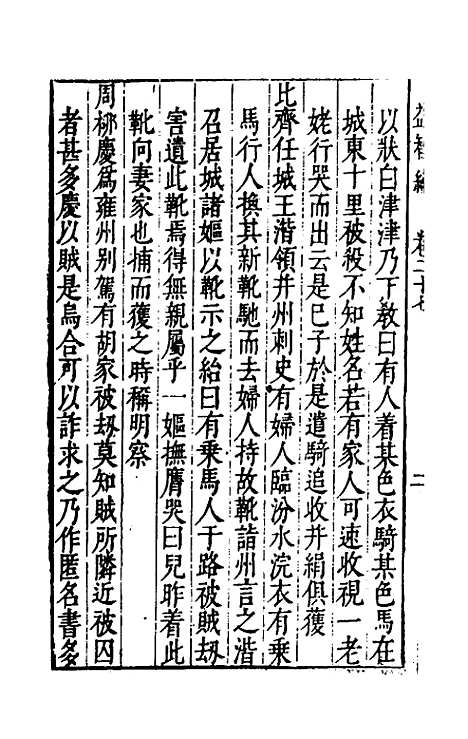 益智編 卷二十七 二
以狀白津津乃下教曰有人着某色衣騎某色馬在
城東十里被殺不知姓名若有家人可速收視一老
姥行哭而出云是己子於是遣騎追收并絹俱獲
比齊任城王湝領并州刺史有婦人臨汾水浣衣有乗
馬行人換其新靴馳而去婦人持故靴詣州言之湝
召居城諸嫗以靴示之紿曰有乗馬人于路被賊刼
害遺此靴焉得無親屬乎一嫗撫膺哭曰兒昨着此
靴向妻家也捕而獲之時稱明察
周栁慶爲雍州別駕有胡家被刼莫知賊所隣近被囚
者甚多慶以賊是烏合可以詐求之乃作匿名書多